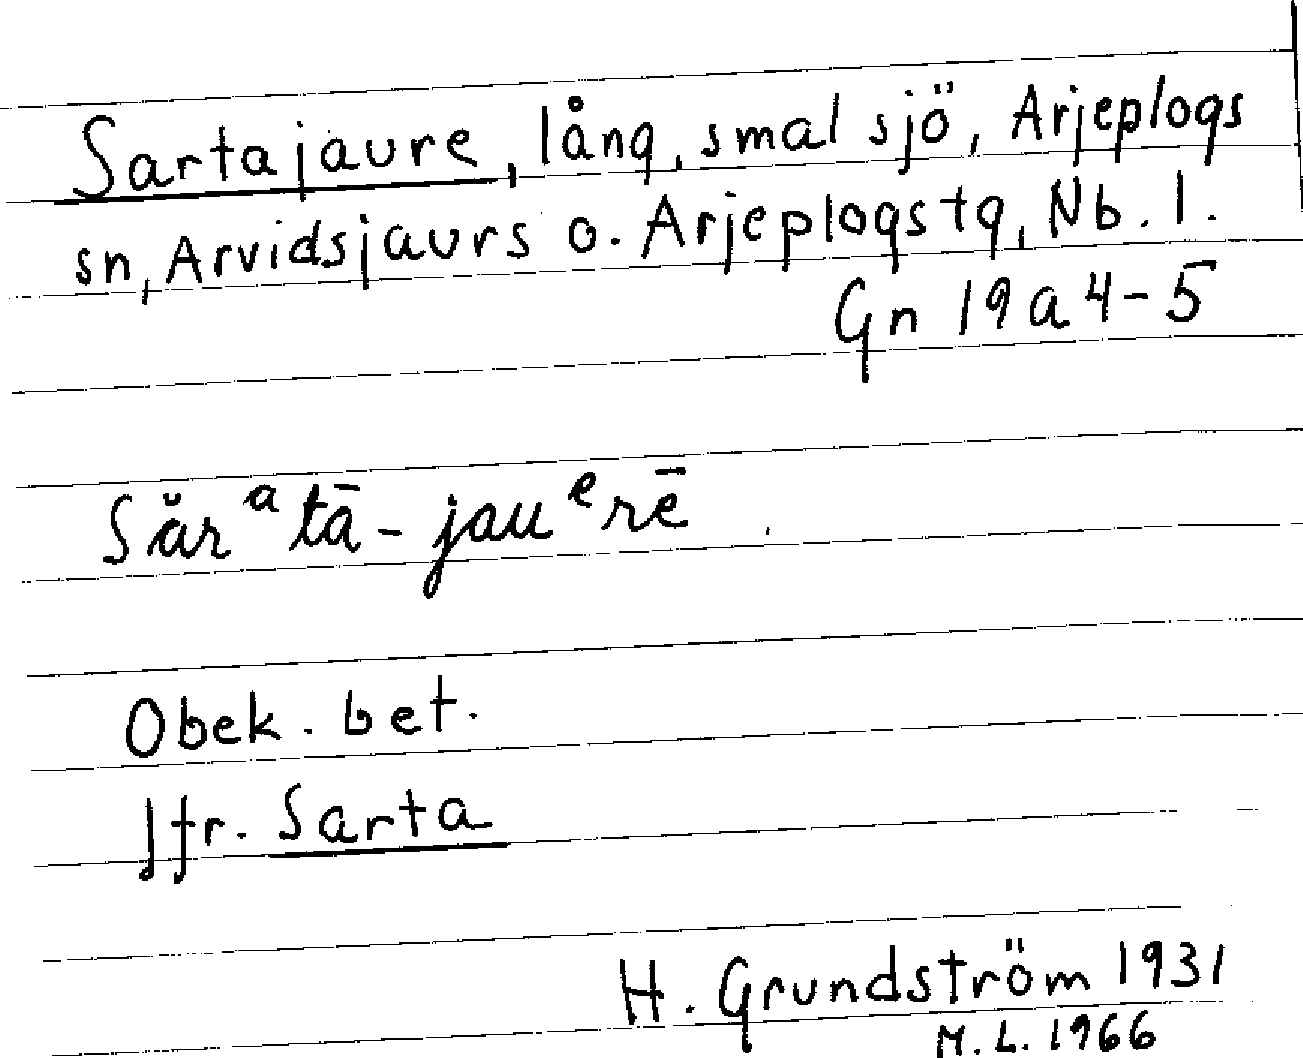 Sartajaure, lång, smal sjö, Arjeplogs
sn, Arvidsjaurs o. Arjeplogs tg, Nb. l.
Gn 19 a 4-5
Sǎrᵃtā-jauᵉrē
Obek. bet.
Jfr. Sarta
H. Grundström 1931
M. L. 1966